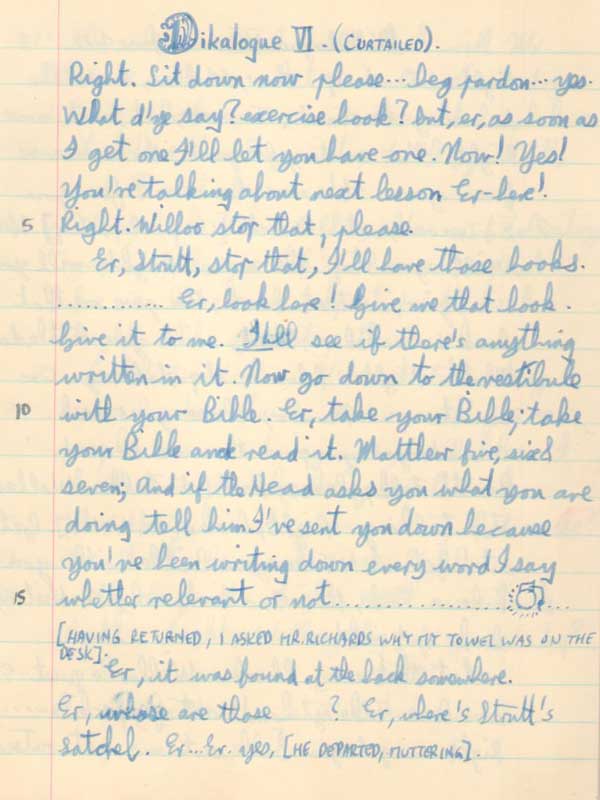 Dikalogue VI. (CURTAILED).
Right. Sit down now please... beg pardon... yes.
What d'ye say? exercise book? but, er, as soon as
I get one I'll let you have one. Now! Yes!
You're talking about next lesson Er-here!
5 Right. Willoo stop that, please.
Er, Strutt, stop that, I'll have those books.
............. Er, look here! Give me that book.
Give it to me. I'll see if there's anything
written in it. Now go down to the vestibule
10 with your Bible. Er, take your Bible; take
your Bible and read it. Matthew five, six &
seven; And if the Head asks you what you are
doing tell him I've sent you down because
you've been writing down every word I say
15 whether relevant or not......................
[HAVING RETURNED, I ASKED MR. RICHARDS WHY MY TOWEL WAS ON THE
DESK].
Er, it was found at the back somewhere.
Er, whose are those ? Er, where's Strutt's
satchel. Er...Er. yes, [HE DEPARTED, MUTTERING].